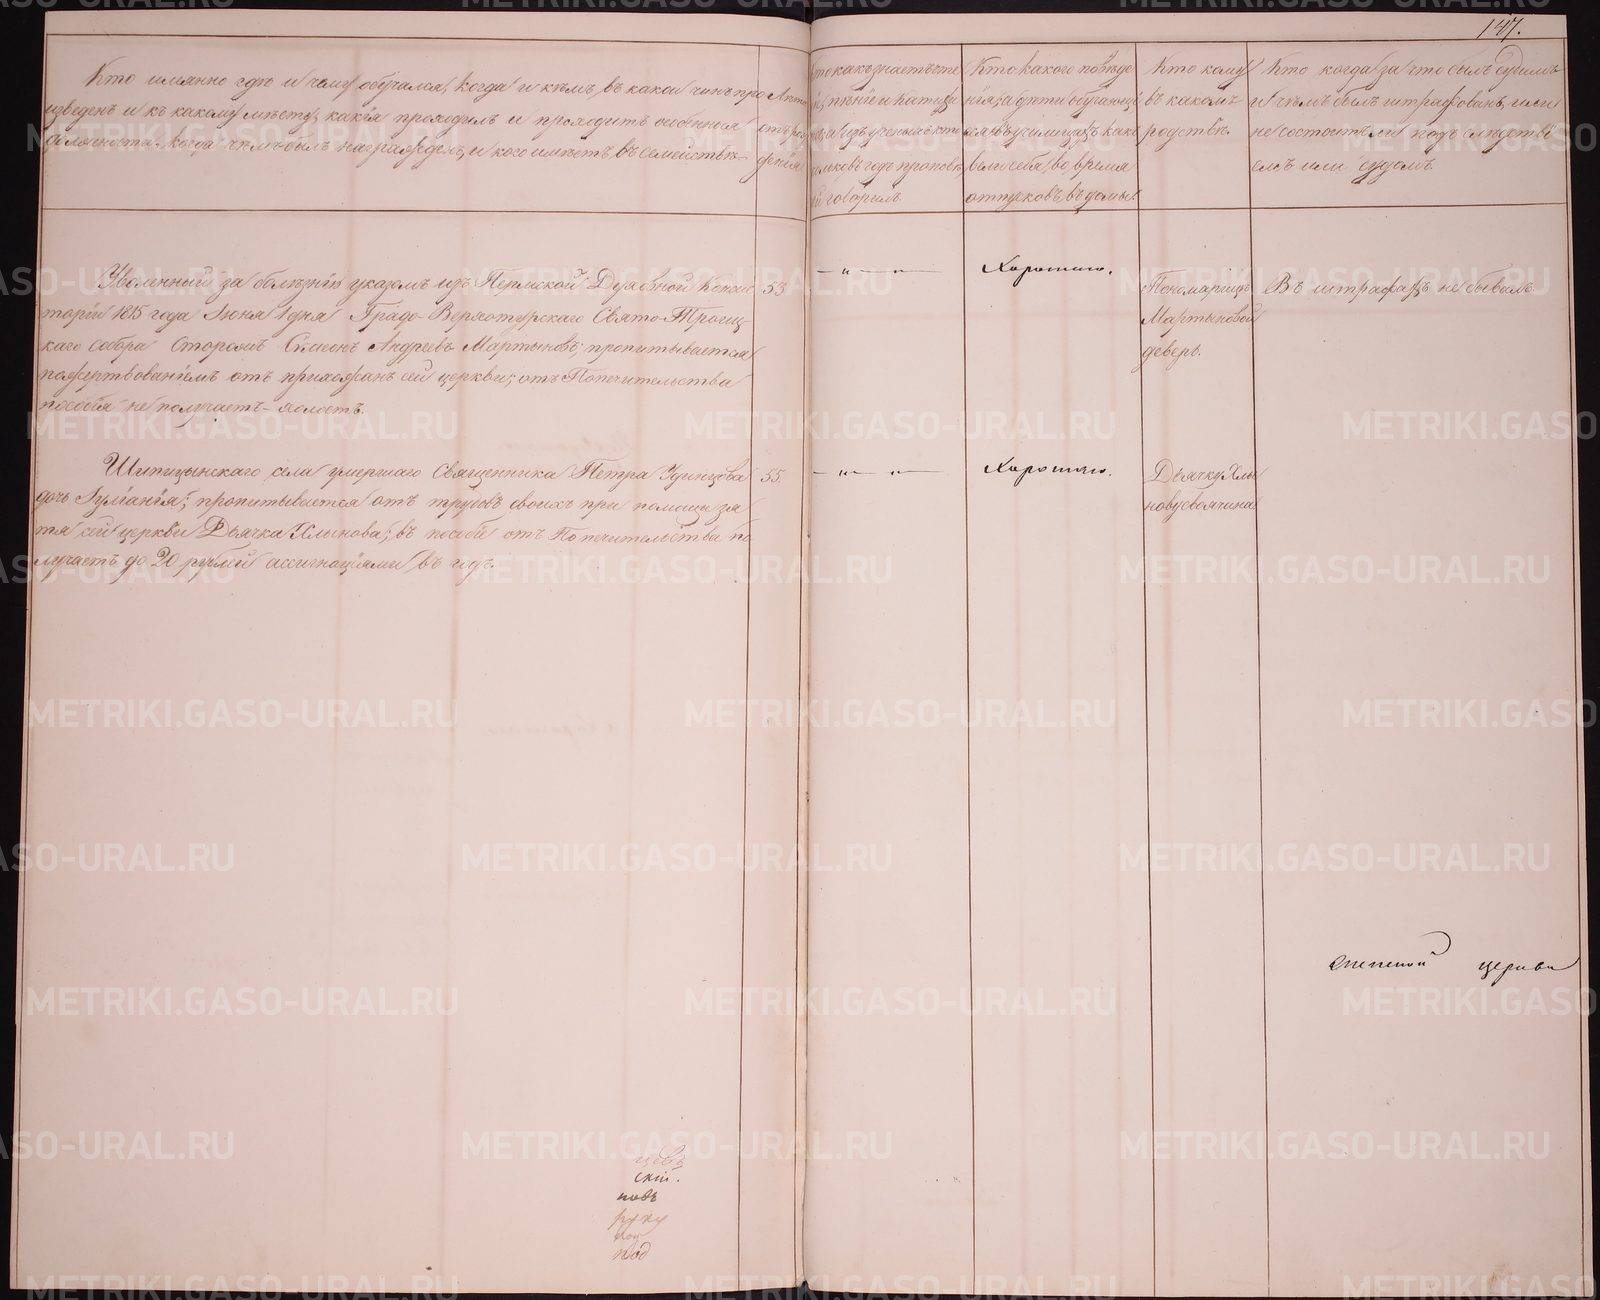 147.
Кто имянно гдѣ и чему обучался, когда и кѣмъ, въ какой чинъ про
изведенъ и къ какому мѣсту, какія проходилъ и проходитъ особенныя
должности. Когда чѣмъ былъ награжденъ, и кого имѣетъ въ семействѣ
Лѣта
отъ рож
денія
Кто какого поведе
нія, а дѣти обучающі
еся въ училищахъ какъ
вели себя во время
отпусковъ въ домы.
Кто кому
въ какомъ
родствѣ.
Кто когда за что былъ судимъ
и чѣмъ былъ штрафованъ, или
не состоитъ ли подъ слѣдстві
емъ или судомъ.
Уволенный за болѣзнію указомъ изъ Пермской Духовной Конси
торіи 1815 года Іюня 1 дня Градо-Верхотурскаго Свято-Троиц-
каго собора Сторожъ Сѵмеонъ Андреевъ Мартыновъ; пропитывается
пожертвованіемъ отъ прихожанъ сей церкви; отъ Попечительства
пособія не получаетъ - холостъ.
53
— „ — „ —
Хорошаго.
Пономарицѣ
Мартыновой
деверь.
Въ штрафахъ не бывалъ.
Шипицынскаго села умершаго Священника Петра Удинцова
дочь Іуліанія; пропитывается отъ трудовъ своихъ при помощи зя
тя сей церкви Дьячка Хлынова; въ пособіе отъ Попечительства по
лучаетъ до 20 рублей ассигнаціями въ годъ.
55.
— „ — „ —
Хорошаго.
Дьячку Хлы
нову своячина
церкви
цевъ
скій.
новъ
руку
под
METRIKI.GASO-URAL.RU